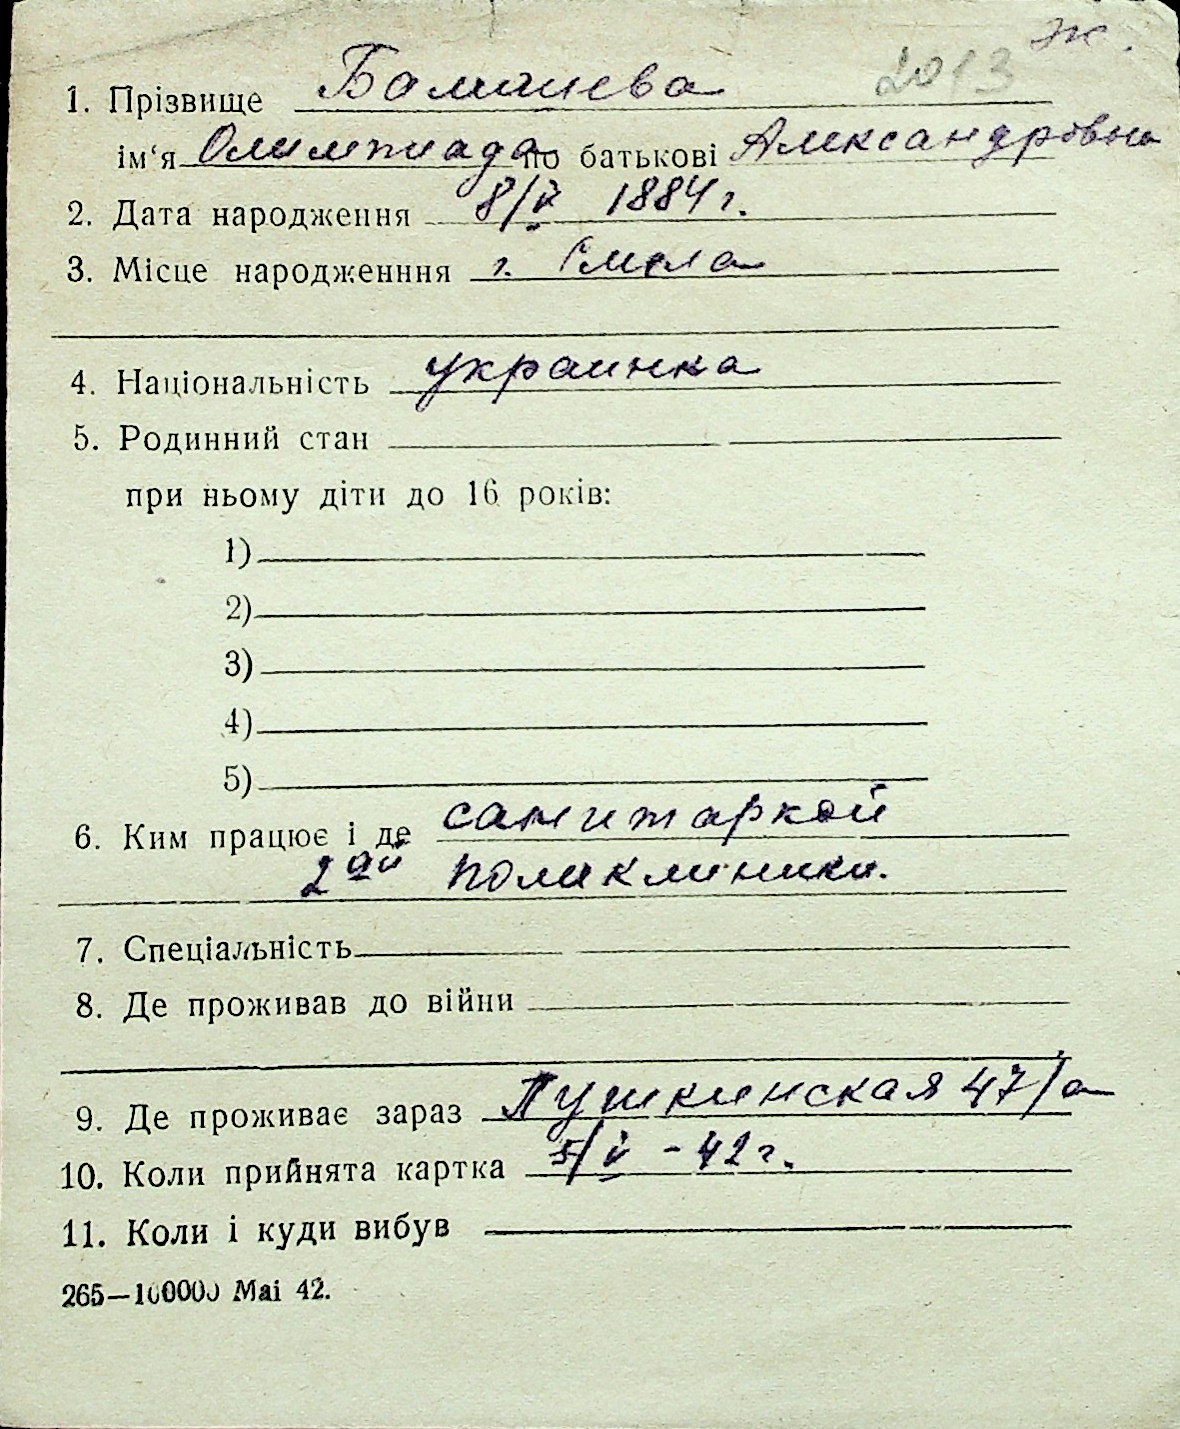 ж.
2013
1. Прізвище
ім‘я Олимпиада по батькові Александровна
2. Дата народження 8/V 1884 г.
3. Місце народженння г. Смела
4. Національність украинка
5. Родинний стан
при ньому діти до 16 років:
1)
2)
3)
4)
5)
6. Ким працює і де санитаркой
2ой поликлиники.
7. Спеціальність
8. Де проживав до війни
9. Де проживає зараз Пушкинская 47/а
10. Коли прийнята картка 5/V - 42 г.
11. Коли і куди вибув
265—100000 Mai 42.